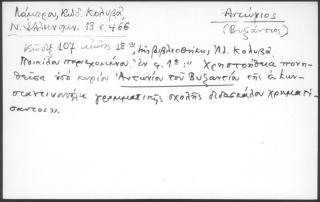 Λάμπρου, Κωδ. Κολυβᾶ,
Ν. Ἑλληνομν. 13 σ. 466
Ἀντώνιος
(Βυζάντιος)
Κῶδιξ 107 αἰῶνος 18ου, τῆς βιβλιοθήκης Ἀλ. Κολυβᾶ
Ποικίλου περιεχομένου. ἐν φ. 1α: "Χρηστοήθεια ποιη-
θεῖσα ὑπὸ κυρίου Ἀντωνίου τοῦ Βυζαντίου τῆς ἐν Κων-
σταντινουπόλει γραμματικῆς σχολῆς διδασκάλου χρηματί-
σαντος».